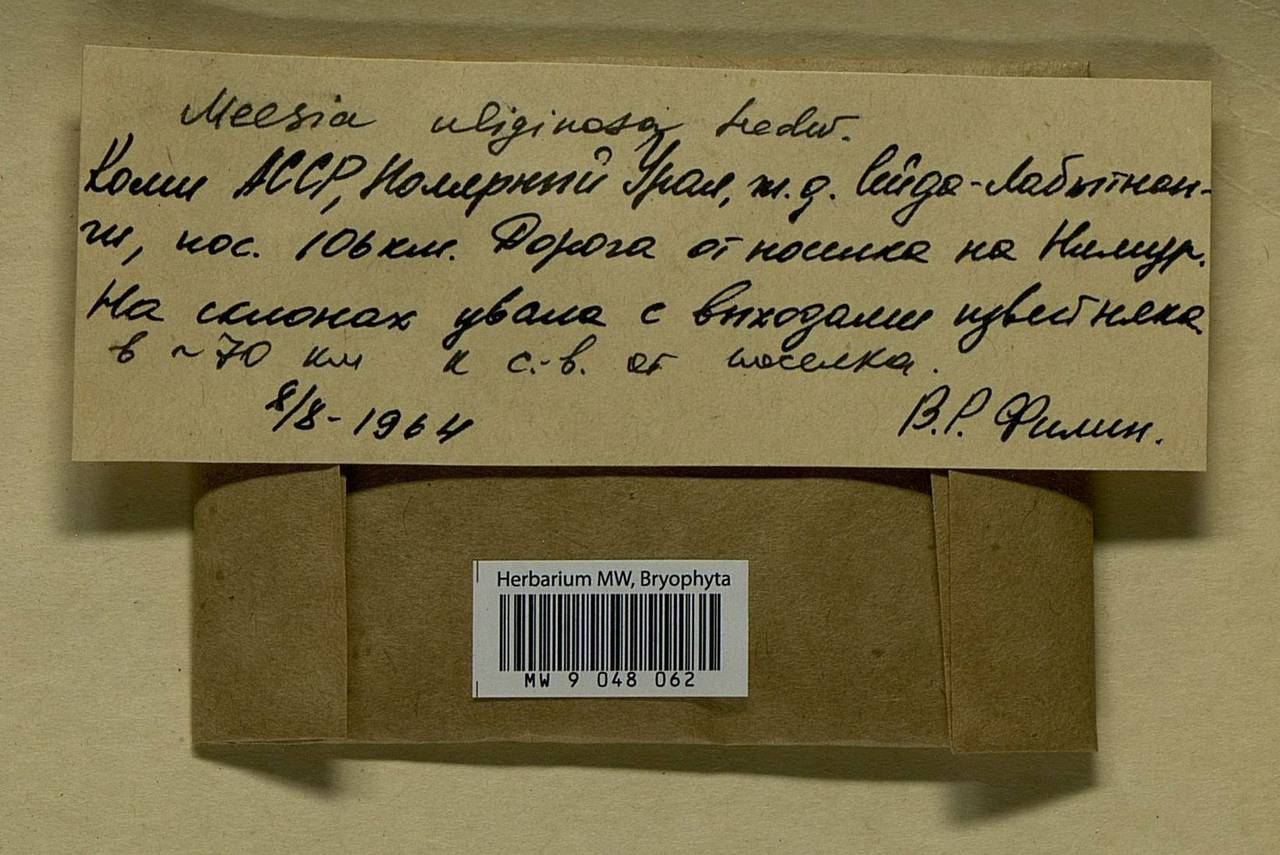 Meesia uliginosa Hedw.
Коми АССР, Полярный Урал, ж.д. Сейда-Лабытнан-
ги, пос. 106 км. Дорога от поселка на Пымур.
На склонах увала с выходами известняка
в ~70 км к с.-в. от поселка.
8/8-1964 В.Р. Филин.
Herbarium MW, Bryophyta
MW 9 048 062